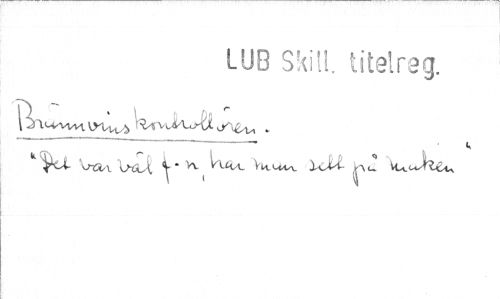 LUB Skill. titelreg.
Brännvinskontrollören.
"Det var väl f-n, har man sett på maken"